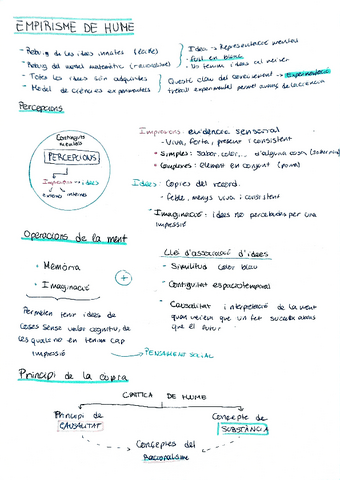 EMPIRISME DE HUME
- Rebuig de les idees innates (escèptic)
- Rebuig del model matemàtic (→ racionalisme)
- Totes les idees són adquirides
- Model de ciències experimentals
Idea → Representació mental
- Full en blanc
- No tenim idees al néixer
Qüestió clau del coneixement → Experimentació
treball experimental permet avanç de la ciència
Percepcions
Continguts mentals
PERCEPCIONS
Impressions → idees
externes internes
Impressions: evidència sensorial
- Viva, forta, present i consistent
- Simples: Sabor, color,... d'alguna cosa
- Complexes: element en conjunt (poma)
Idees: Copies del record.
- Feble, menys viva i consistent
- Imaginació: idees no percebudes per una
impressió
Operacions de la ment
• Memòria
• Imaginació
+
Permeten tenir idees de
coses sense valor cognitiu, de
les quals no en tenim cap
impressió
Llei d'associació d'idees
- Similitud color blau
- Contigüitat espaciotemporal
- Causalitat interpretació de la ment
quan veiem que un fet succeeix abans
que el futur
Principi de la còpia
CRÍTICA DE HUME
Principi de
CAUSALITAT
Concepte de
SUBSTÀNCIA
Conceptes del
Racionalisme